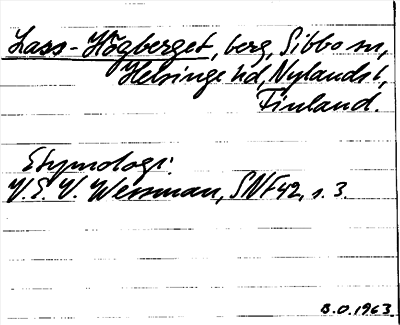 Lass-Högberget, berg, Sibbo sn,
Helsinge hd, Nylands l,
Finland.
Etymologi:
V.E.V. Wessman, SNF 42, s. 3.
B.O. 1963